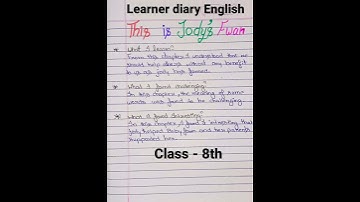 Learner diary English
This is Jody's Fwan
* What I learn?
From this chapter I understand that we
should help always without any benefit
to us as Jody help fawn.
* What I found challenging?
In this chapter, the meaning of some
words was found to be challenging.
* What I found interesting?
In this chapter, I found interesting that
Jody helped baby fawn and his parents
supported him.
Class - 8th